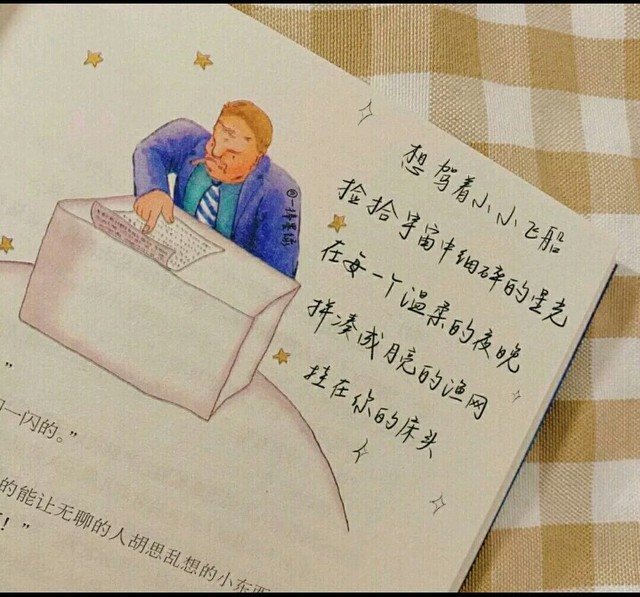 想驾着小小飞船
捡拾宇宙中细碎的星光
在每一个温柔的夜晚
拼凑成月亮的渔网
挂在你的床头
”
一闪的。”
的能让无聊的人胡思乱想的小东西
！”